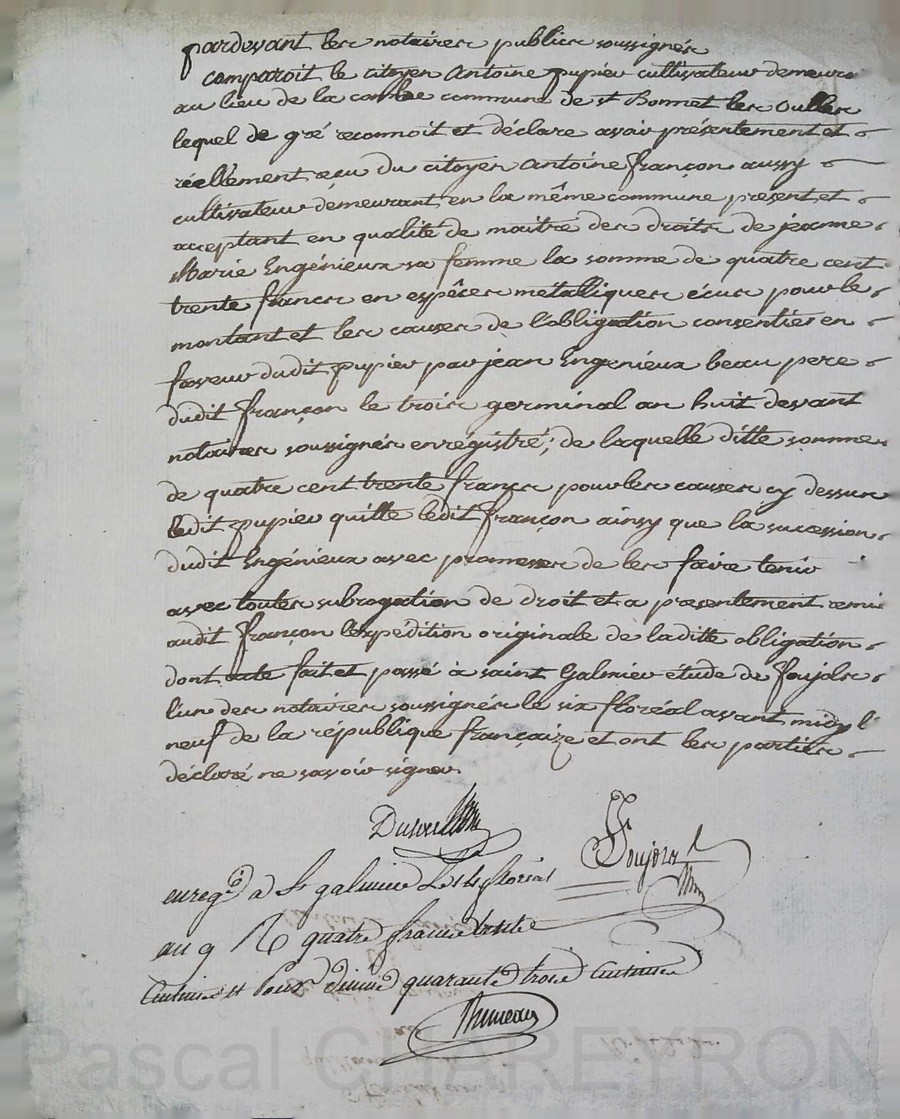 pardevant les notaires publics soussignés
comparoit le citoyen Antoine pupier cultivateur demeurt
au lieu de la combe commune de st Bonnet les Oulles
lequel de gré reconnoit et déclare avoir présentement et
réellement reçu du citoyen Antoine françon aussy
cultivateur demeurant en la même commune present et
acceptant en qualité de maitre des droits de jeanne
Marie Engénieux sa femme la somme de quatre cent
trente francs en espêces métalliques écus pour le
montant et les causes de l'obligation consenties en
faveur dudit pupier par jean Engenieux beau pere
dudit françon le trois germinal an huit devant
notaires soussignés enrégistré; de laquelle ditte somme
de quatre cent trente francs pour les causes cy dessus
ledit pupier quitte ledit françon ainsy que la sucession
dudit Engénieux avec promesses de les faire tenir
avec toutes subrogation de droit et a presentement remis
audit françon l'expédition originale de laditte obligation
dont acte fait et passé à saint Galmier étude de foujols
l'un des notaires soussignés le six floréal avant midy l'
neuf de la république françaize et ont les parties
déclaré ne savoir signer
foujols
enregé a St galmier le floréal
an 9 R quatre francs trente
Centimes et pour dixime quarante trois Centimes
Pascal CHAREYRON